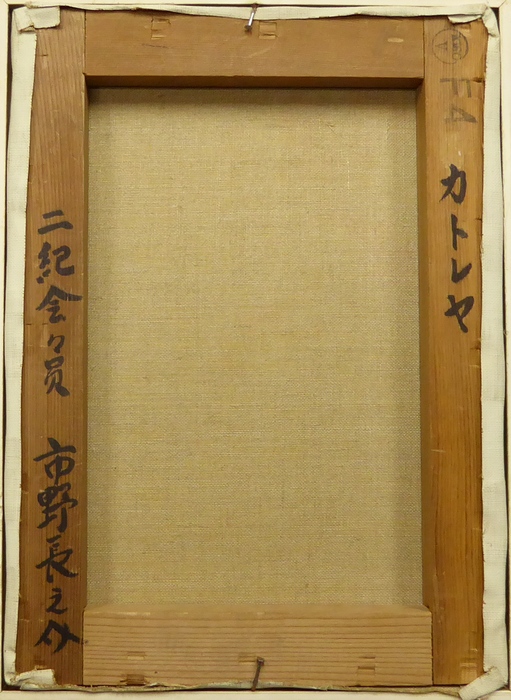 F4
カトレヤ
二紀会々員 市野長之介